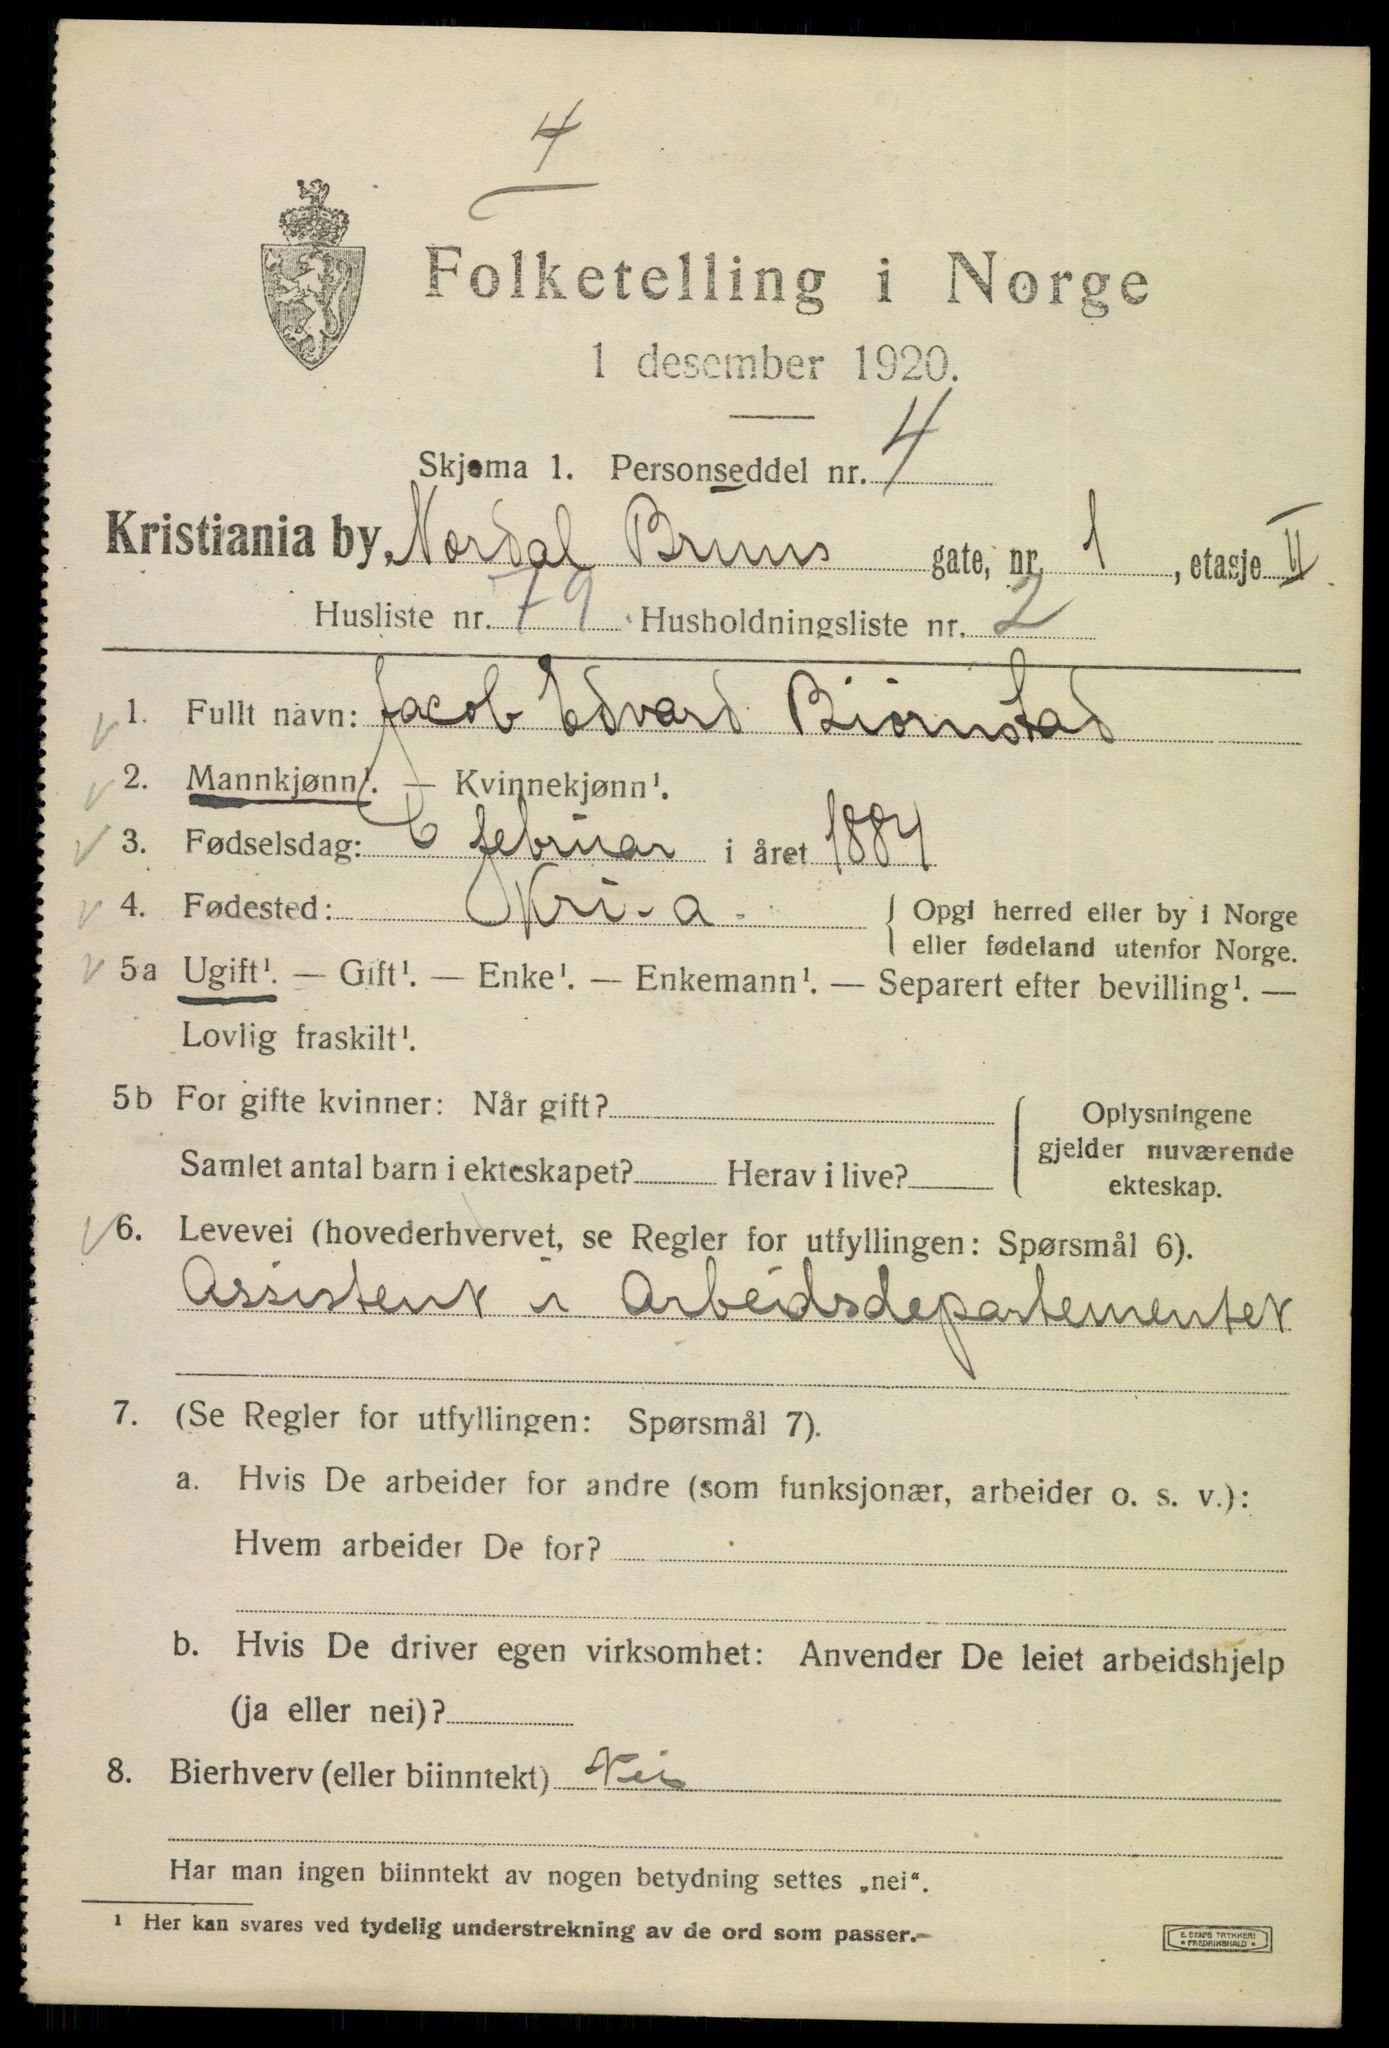 4
Folketelling i Norge
1 desember 1920.
Skjema 1. Personseddel nr. 4
Kristiania by, Nordal Bruns gate, nr. 1, etasje II
Husliste nr. 79 Husholdningsliste nr. 2
1. Fullt navn: Jacob Edvard Biørnstad
2. Mannkjønn¹. — Kvinnekjønn¹.
3. Fødselsdag: 6 februar i året 1884
4. Fødested: Kri-a. { Opgi herred eller by i Norge
eller fødeland utenfor Norge.
5a Ugift¹. — Gift¹. — Enke¹. — Enkemann¹. — Separert efter bevilling¹. —
Lovlig fraskilt¹.
5b For gifte kvinner: Når gift?
Samlet antal barn i ekteskapet? Herav i live?
Oplysningene
gjelder nuværende
ekteskap.
6. Levevei (hovederhvervet, se Regler for utfyllingen: Spørsmål 6).
Assistent i Arbeidsdepartementet
7. (Se Regler for utfyllingen: Spørsmål 7).
a. Hvis De arbeider for andre (som funksjonær, arbeider o. s. v.):
Hvem arbeider De for?
b. Hvis De driver egen virksomhet: Anvender De leiet arbeidshjelp
(ja eller nei)?
8. Bierhverv (eller biinntekt) Nei
Har man ingen biinntekt av nogen betydning settes „nei“.
¹ Her kan svares ved tydelig understrekning av de ord som passer.
E. SEM'S TRYKKERI
• FREDRIKSHALD •